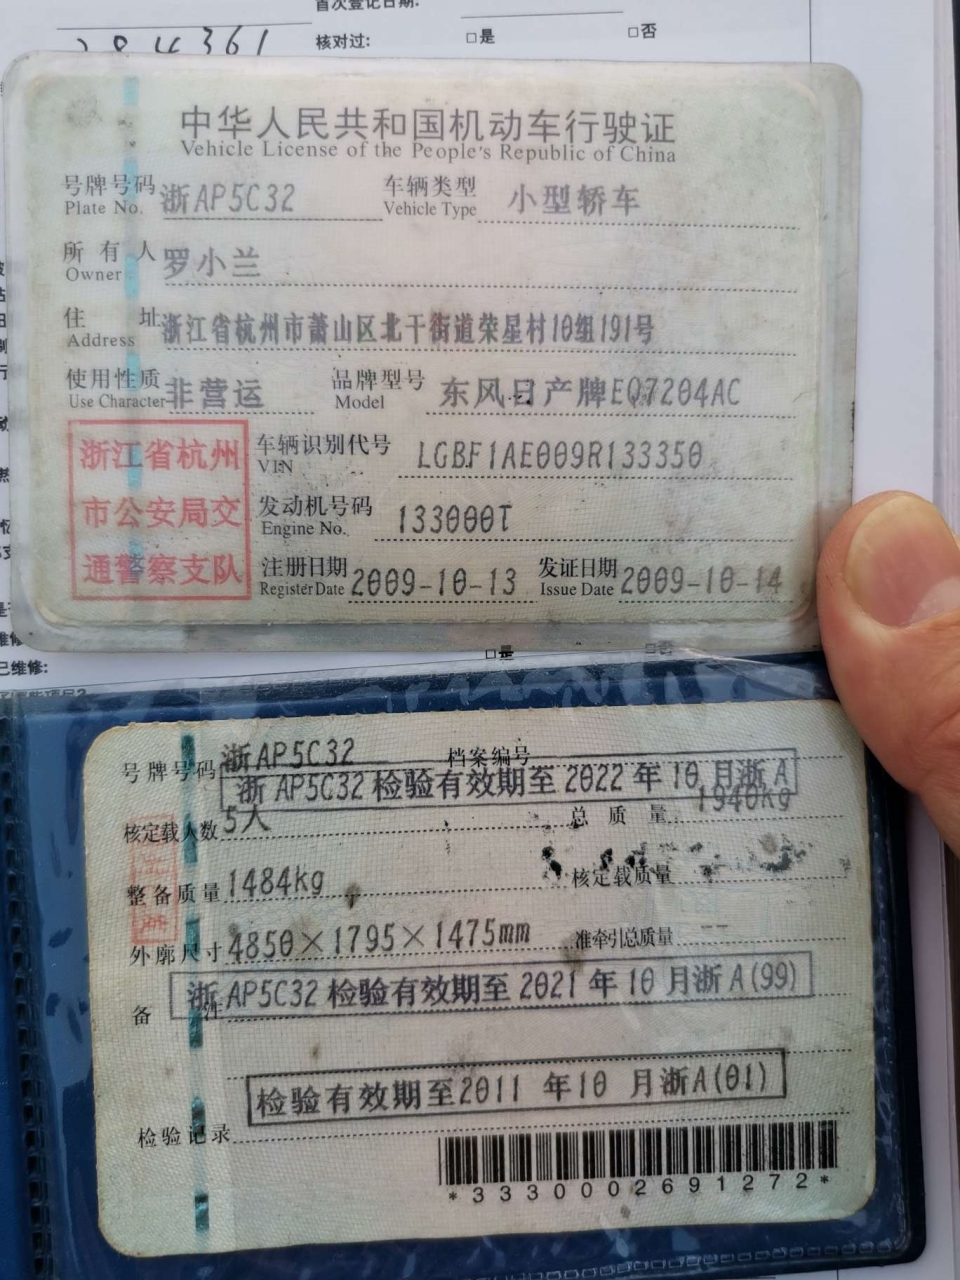 首次登记日期:
核对过: □是 □否
中华人民共和国机动车行驶证
Vehicle License of the People's Republic of China
号牌号码 浙AP5C32 车辆类型 小型轿车
Plate No. Vehicle Type
所有人 罗小兰
Owner
住址 浙江省杭州市萧山区北干街道荣星村10组191号
Address
使用性质 非营运 品牌型号 东风日产牌EQ7204AC
Use Character Model
浙江省杭州
市公安局交
通警察支队
车辆识别代号 LGBF1AE009R133350
VIN
发动机号码 133000T
Engine No.
注册日期 2009-10-13 发证日期 2009-10-14
Register Date Issue Date
□是 □否
已维修:
号牌号码 浙AP5C32 档案编号
浙AP5C32检验有效期至2022年10月浙A
核定载人数 5人 总质量 1940kg
整备质量 1484kg 核定载质量
外廓尺寸 4850×1795×1475mm 准牵引总质量 --
浙AP5C32检验有效期至2021年10月浙A(99)
备注
检验有效期至2011年10月浙A(01)
检验记录
*3330002691272*